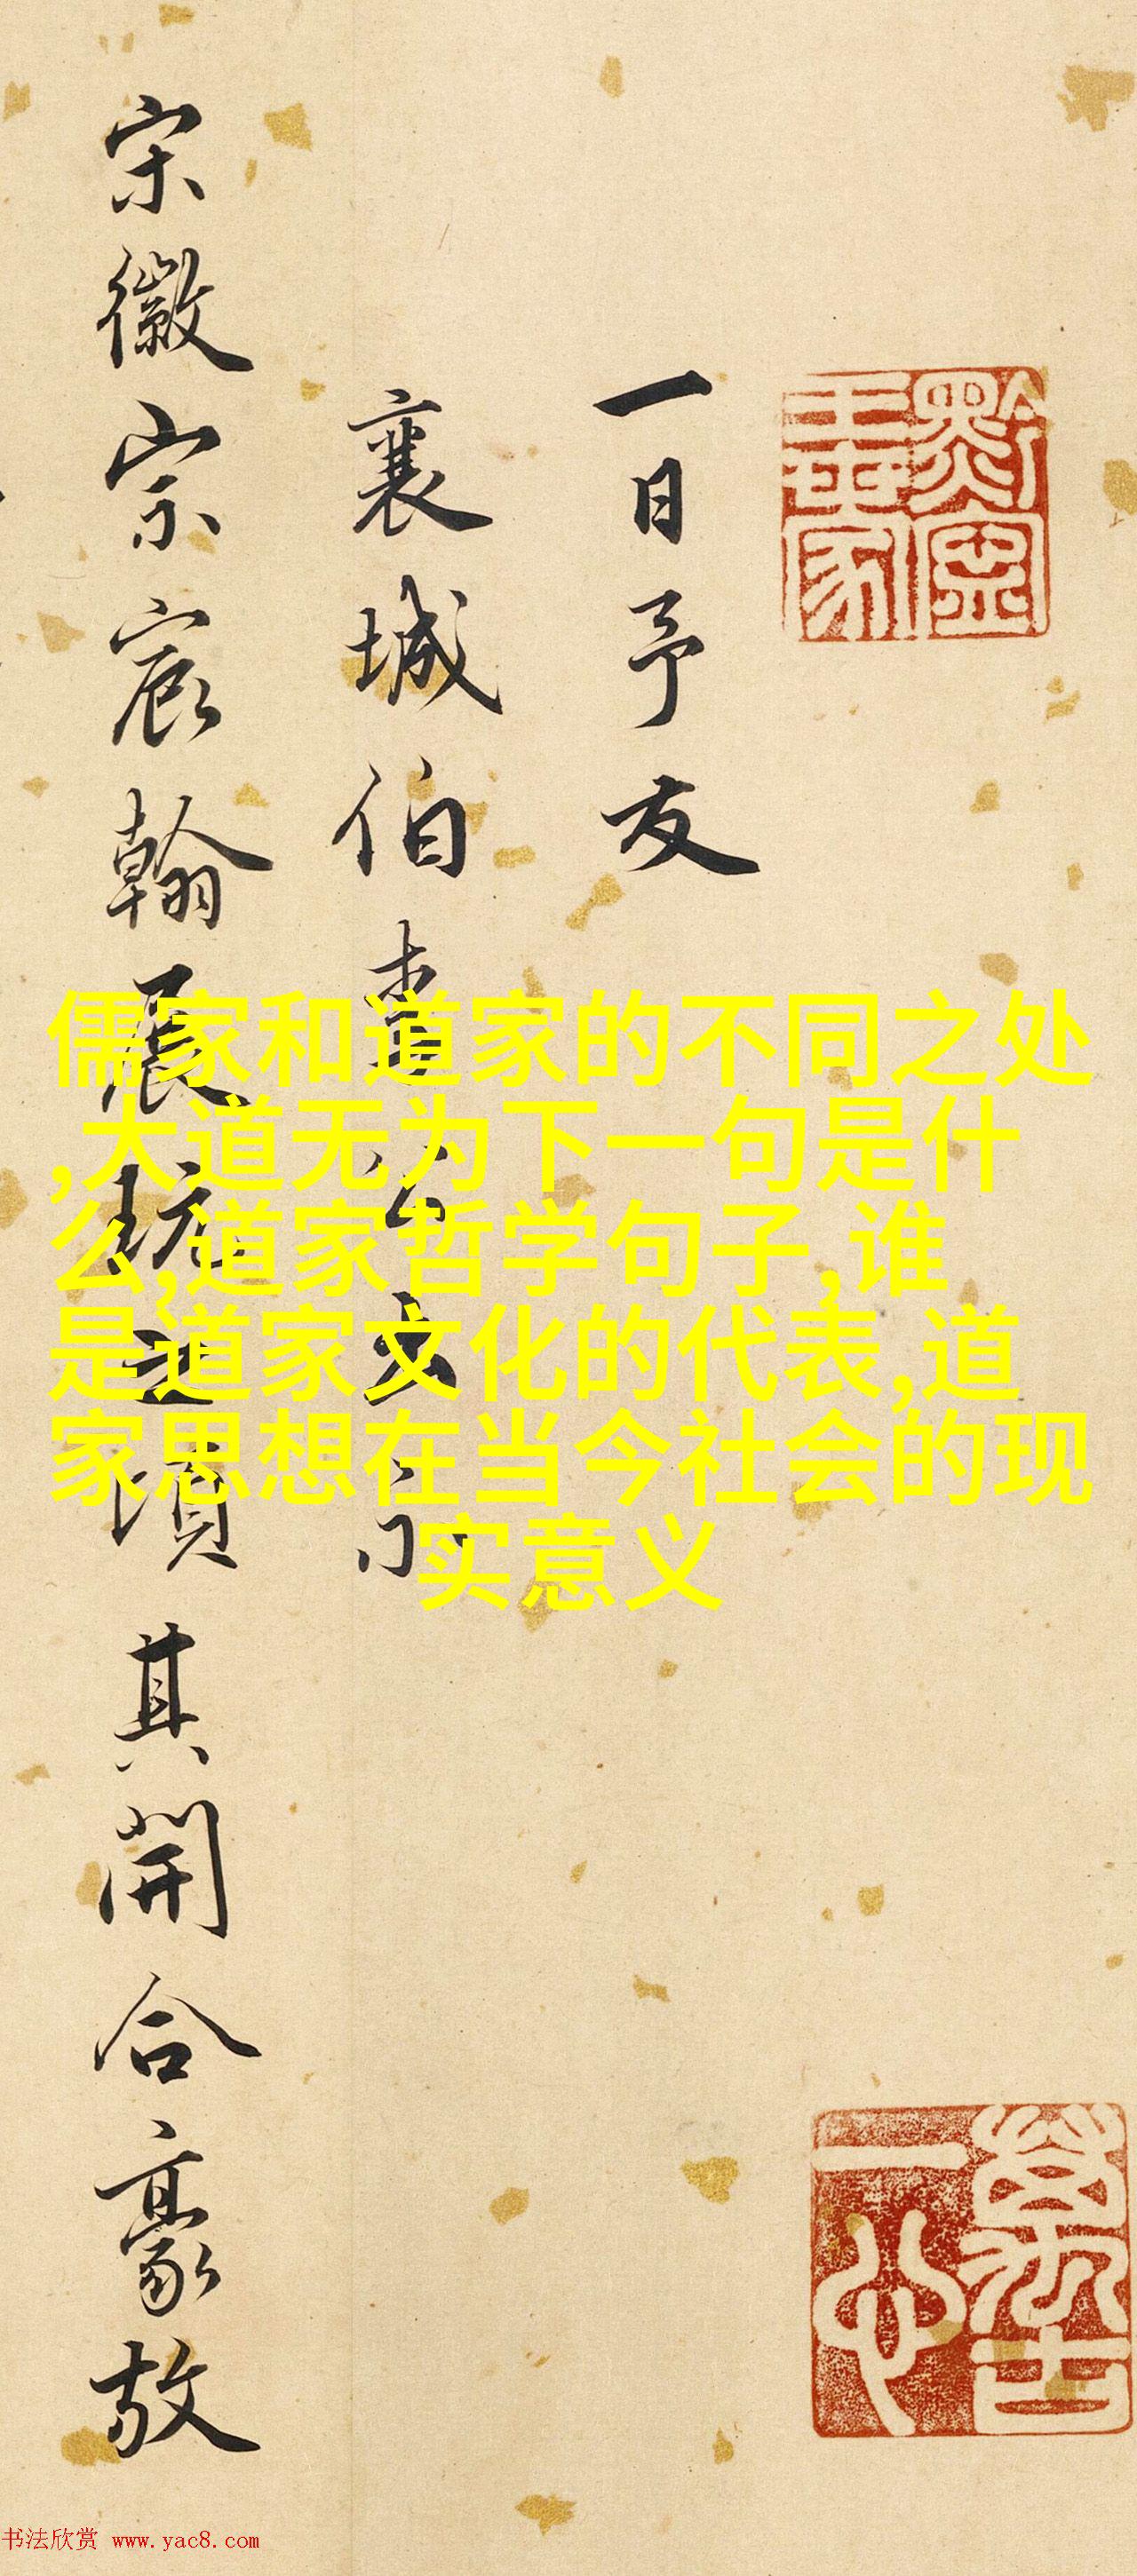 一日予友
襄城伯李公玄示
宋徽宗宸翰展玩之頃其開合豪放
儒家和道家的不同之处
,大道无为下一句是什
么,道家哲学句子,谁
是道家文化的代表,道
家思想在当今社会的现
实意义
黔寧王世家
萬古一心
书法欣赏 www.yac8.com